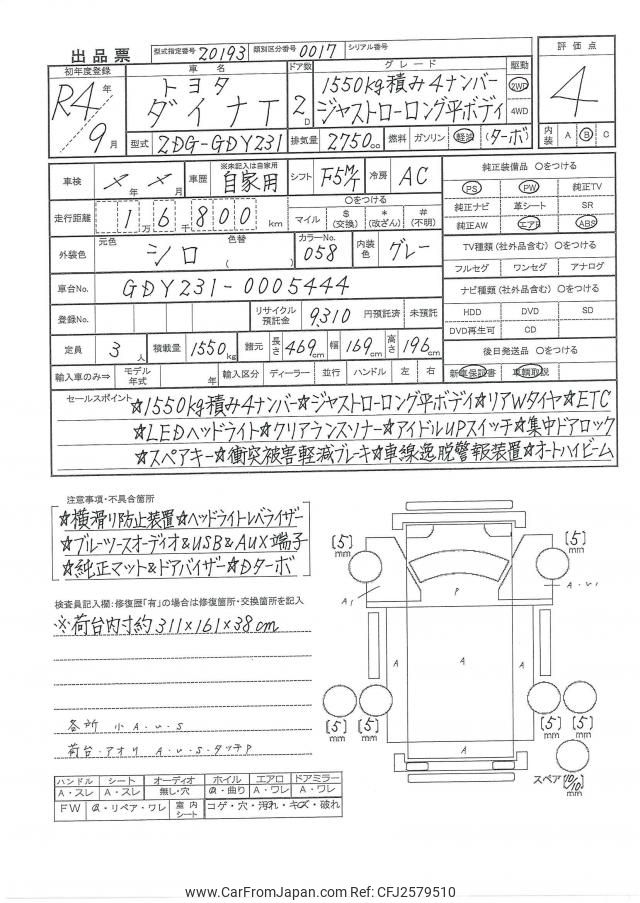 出品票
型式指定番号 20193 類別区分番号 0017 シリアル番号
初年度登録 R4年 9月
車名 トヨタ ダイナT
ドア数 2D
グレード 1550kg積み4ナンバー ジャストローロング平ボディ
駆動 2WD 4WD
評価点 4
内装 A B C
型式 2DG-GDY231 排気量 2750cc 燃料 ガソリン 軽油 (ターボ)
車検 ×年×月 車歴 ※未記入は自家用 自家用 シフト F5M/T 冷房 AC
走行距離 1万6千800km ○をつける マイル $(交換) *(改ざん) #(不明)
外装色 元色 シロ 色替 ( ) カラーNo. 058 内装色 グレー
車台No. GDY231-0005444
登録No. リサイクル預託金 9,310 円預託済 未預託
定員 3人 積載量 1550kg 諸元 長さ 469cm 幅 169cm 高さ 196cm
輸入車のみ⇒ モデル年式 年 輸入区分 ディーラー 並行 ハンドル 左 右
純正装備品 ○をつける
PS PW 純正TV
純正ナビ 革シート SR
純正AW エアB ABS
TV種類(社外品含む) ○をつける
フルセグ ワンセグ アナログ
ナビ種類(社外品含む) ○をつける
HDD DVD SD
DVD再生可 CD
後日発送品 ○をつける
新車保証書 車輌取説
セールスポイント ☆1550kg積み4ナンバー☆ジャストローロング平ボディ☆リアWタイヤ☆ETC
☆LEDヘッドライト☆クリアランスソナー☆アイドルUPスイッチ☆集中ドアロック
☆スペアキー☆衝突被害軽減ブレーキ☆車線逸脱警報装置☆オートハイビーム
注意事項・不具合箇所
☆横滑り防止装置☆ヘッドライトレベライザー
☆ブルーツースオーディオ&USB&AUX端子
☆純正マット&ドアバイザー☆Dターボ
検査員記入欄:修復歴「有」の場合は修復箇所・交換箇所を記入
※荷台内寸約311×161×38cm
各所 小A・U・S
荷台・アオリ A・U・S・タッチP
ハンドル シート オーディオ ホイル エアロ ドアミラー
A・スレ A・スレ 無し・穴 A・曲り A・ワレ A・ワレ
FW A・リペア・ワレ 室内シート コゲ・穴・汚れ・キズ・破れ
[5]mm
[5]mm
A1
P
A・U1
A
A
A
A
[5]mm
[5]mm
[5]mm
[5]mm
スペア [10/10]mm
www.CarFromJapan.com Ref: CFJ2579510